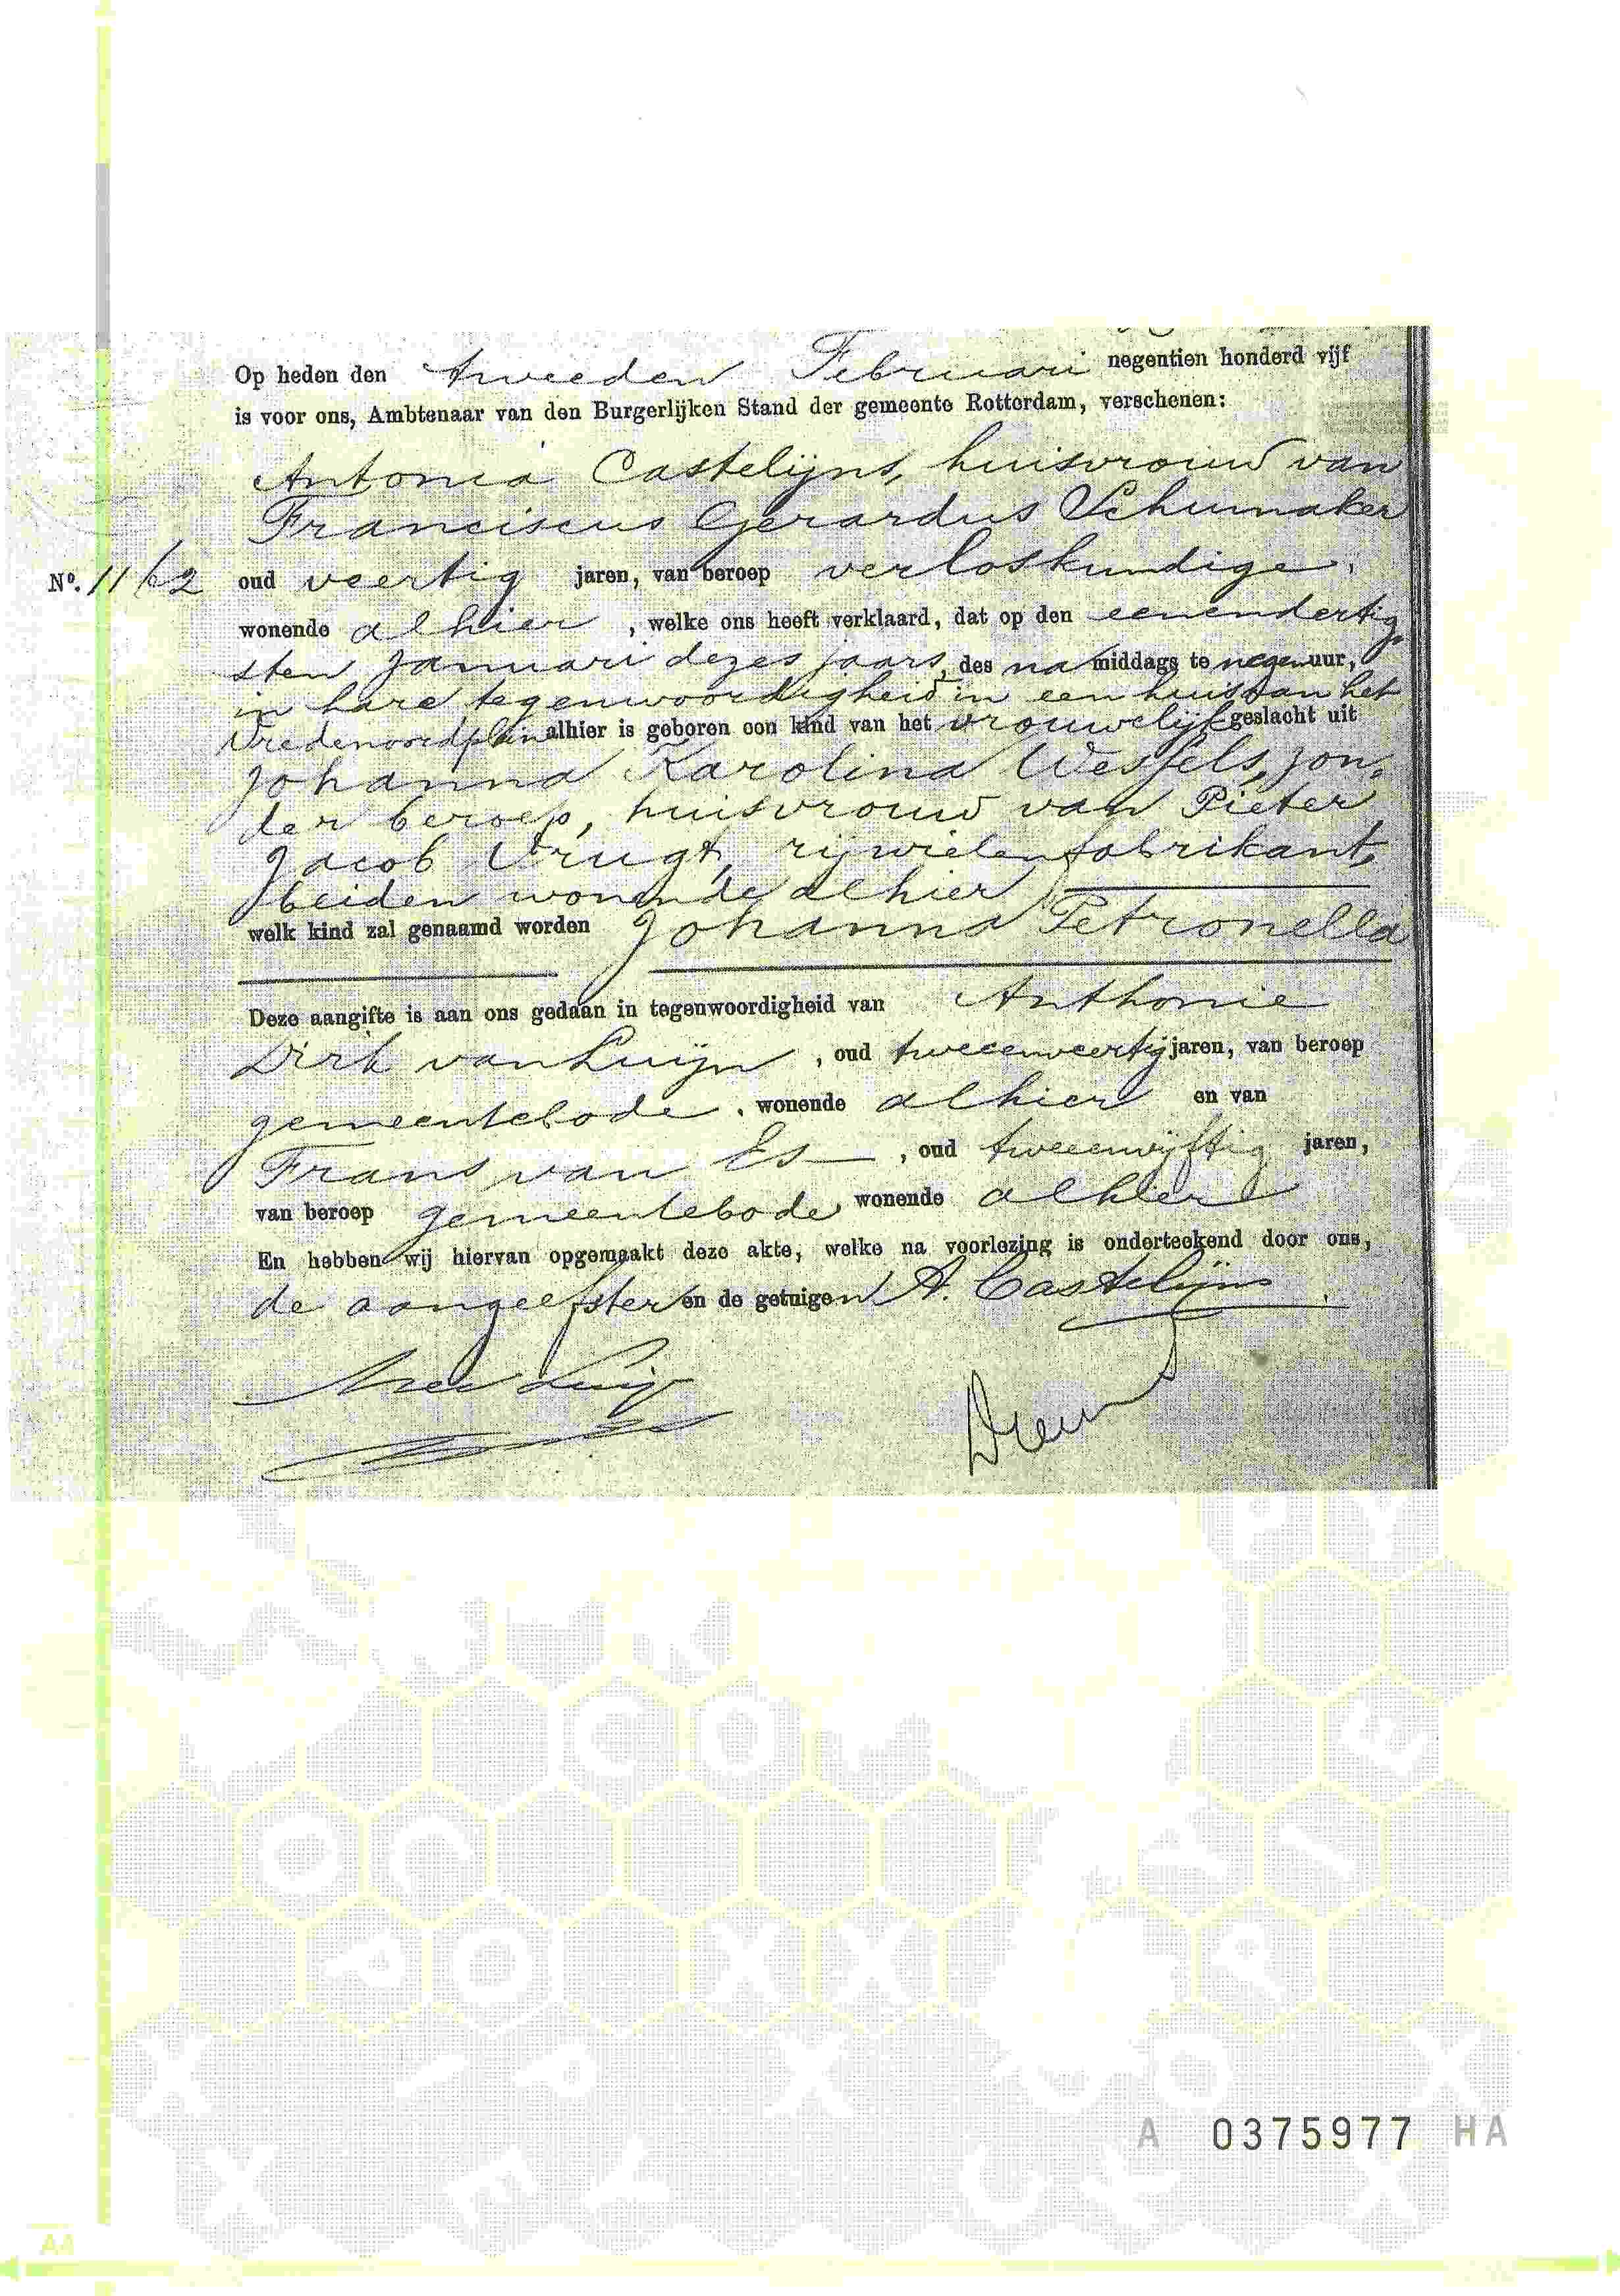 Op heden den tweeden Februari negentien honderd vijf
is voor ons, Ambtenaar van den Burgerlijken Stand der gemeente Rotterdam, verschenen:
Antonia Castelijns, huisvrouw van
Franciscus Gerardus Schumaker
No. 1162 oud veertig jaren, van beroep verloskundige,
wonende alhier, welke ons heeft verklaard, dat op den eenendertig
sten Januari dezes jaars, des namiddags te negen uur,
in hare tegenwoordigheid in een huis aan het
Vredenoordplein alhier is geboren een kind van het vrouwelijk geslacht uit
Johanna Karolina Wessels, zon-
der beroep, huisvrouw van Pieter
Jacob Vrugt, rijwielenfabrikant,
beiden wonende alhier
welk kind zal genaamd worden Johanna Petronella
Deze aangifte is aan ons gedaan in tegenwoordigheid van Anthonie
Dirk van Luijn, oud tweeenveertig jaren, van beroep
gemeentebode, wonende alhier en van
Frans van Es, oud tweeenvijftig jaren,
van beroep gemeentebode wonende alhier
En hebben wij hiervan opgemaakt deze akte, welke na voorlezing is onderteekend door ons,
de aangeefster en de getuigen A. Castelijns
A 0375977 HA